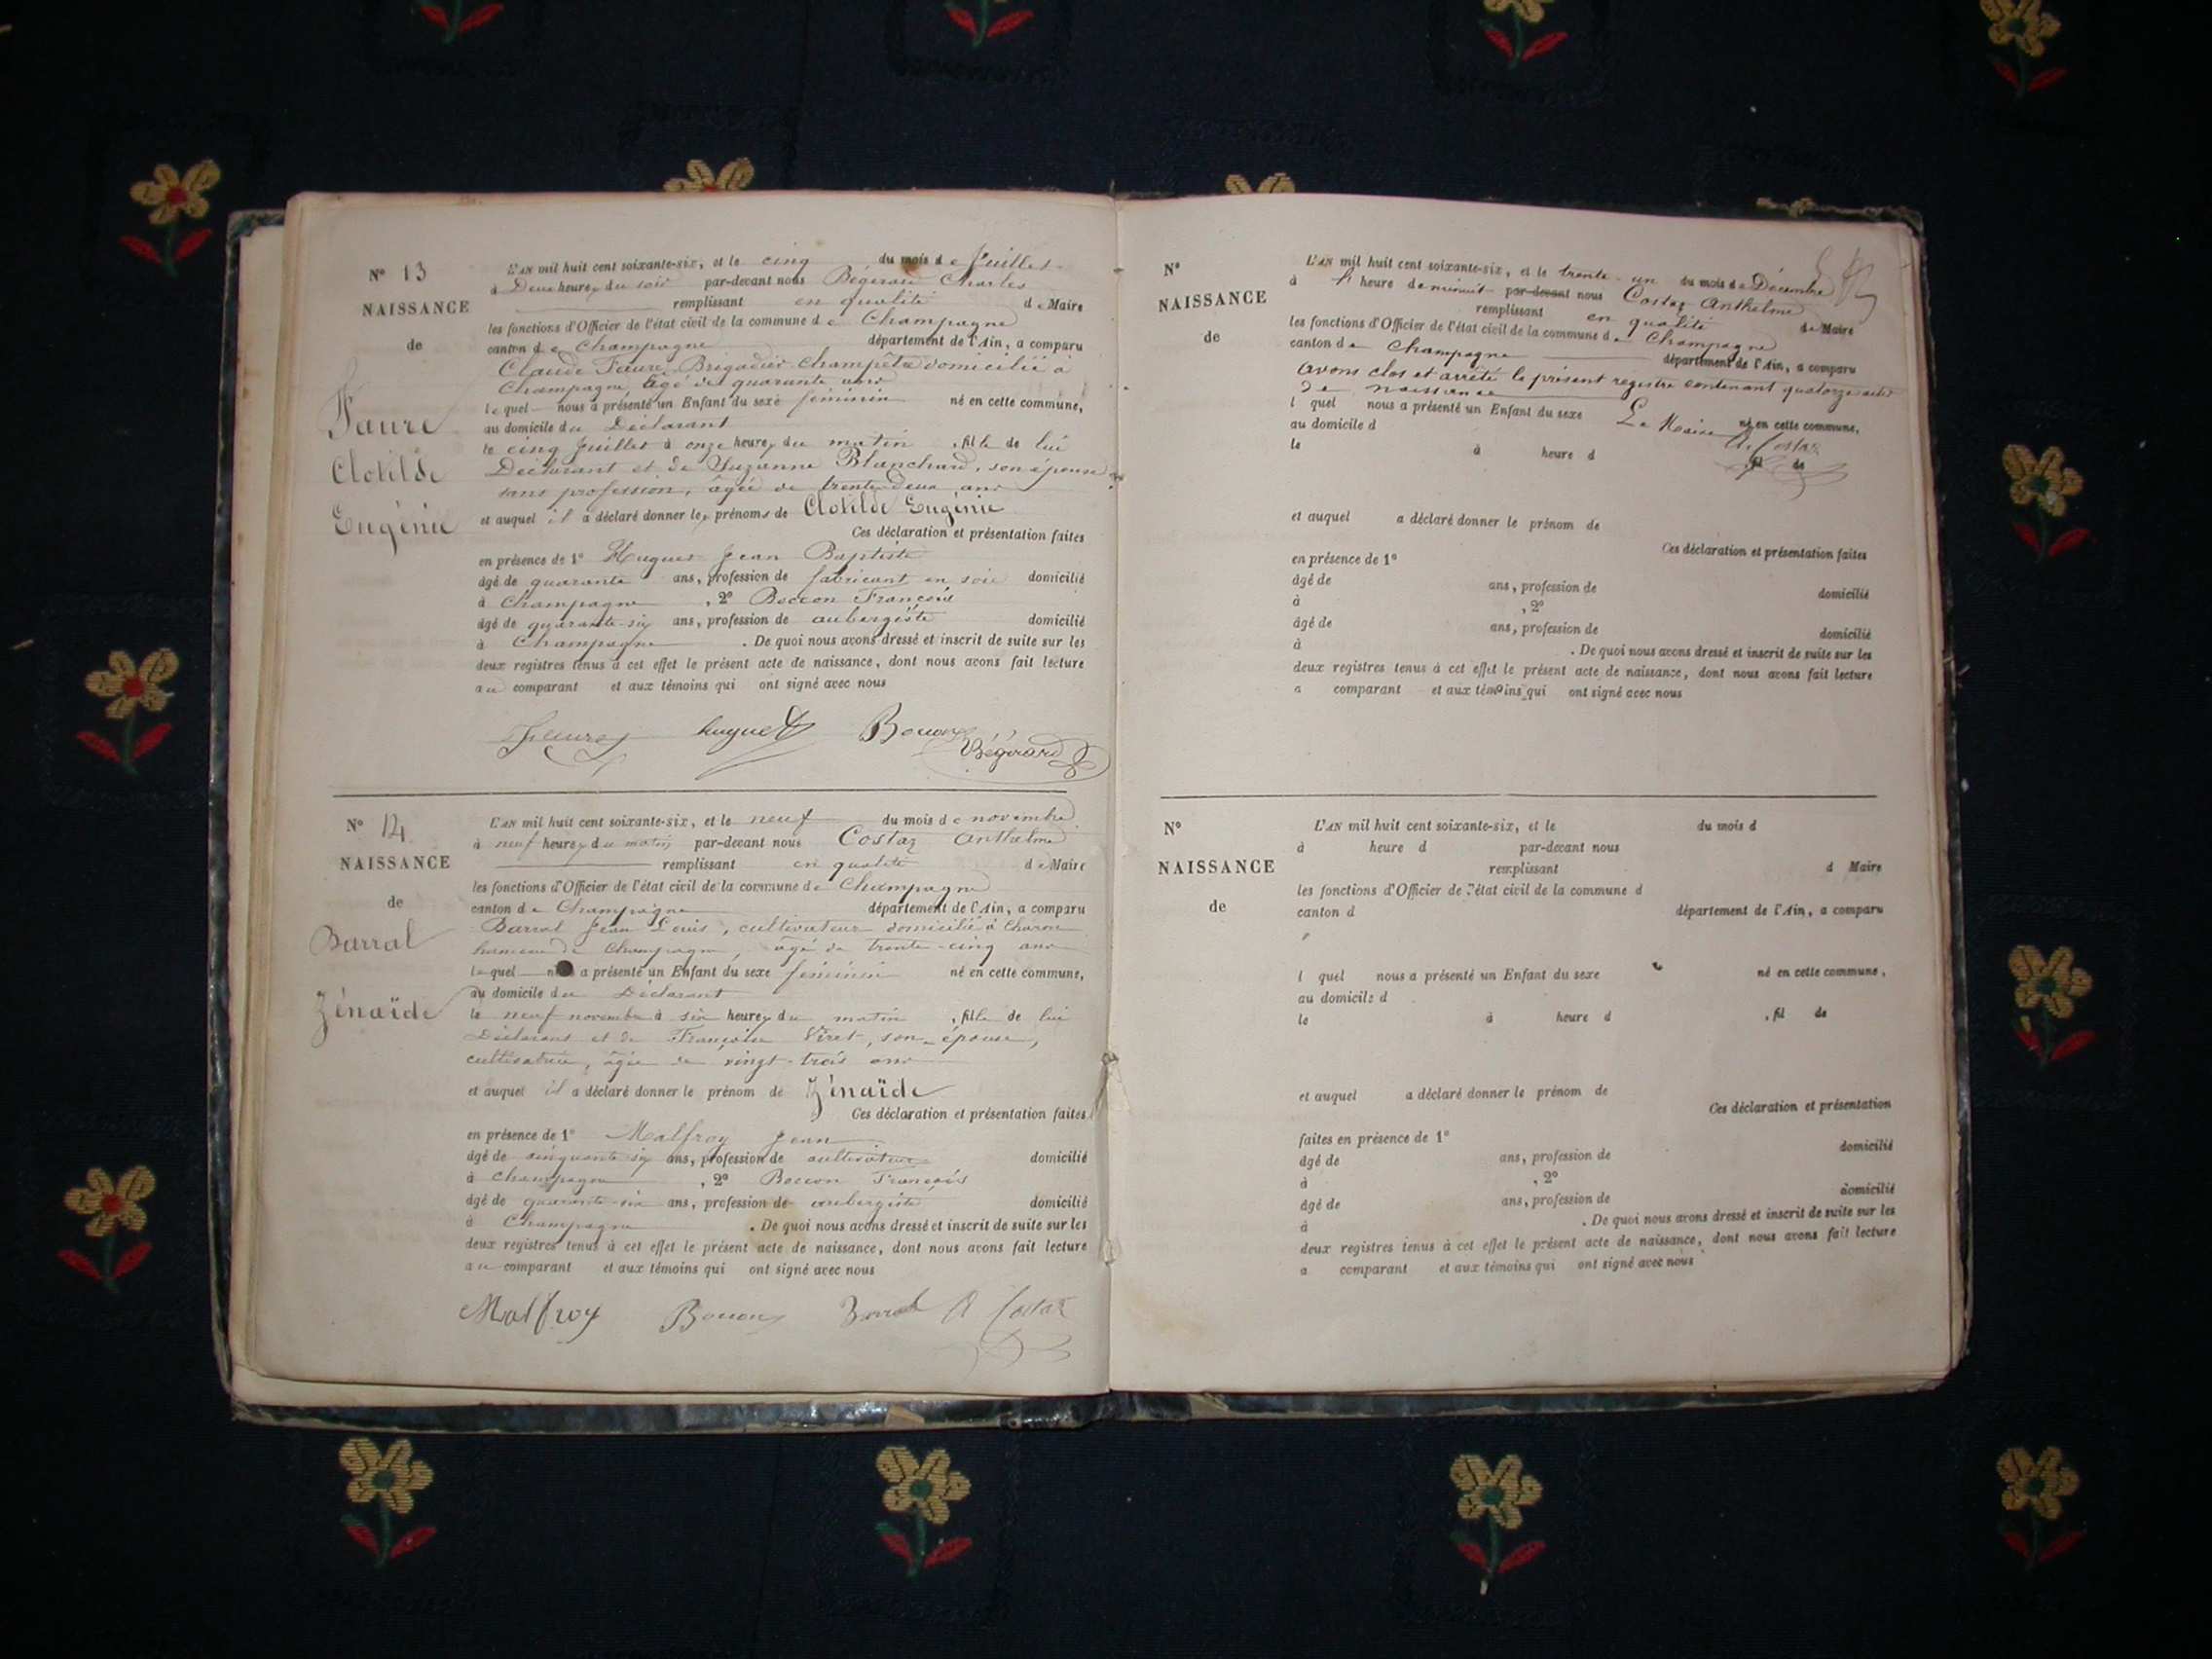 N° 13
NAISSANCE
de
Faure
Clotilde
Eugénie
L'AN mil huit cent soixante-six, et le cinq du mois de Juillet
à Deux heures du soir par-devant nous Bégerard Charles
remplissant en qualité de Maire
les fonctions d'Officier de l'état civil de la commune de Champagne
canton de Champagne département de l'Ain, a comparu
Claude Faure, Brigadier champêtre domicilié à
Champagne âgé de quarante ans
lequel nous a présenté un Enfant du sexe féminin né en cette commune,
au domicile du Déclarant
le cinq Juillet à onze heures du matin, fille de lui
Déclarant et de Suzanne Blanchard, son épouse
sans profession, âgée de trente-deux ans
et auquel il a déclaré donner les prénoms de Clotilde Eugénie
Ces déclaration et présentation faites
en présence de 1° Huguet Jean Baptiste
âgé de quarante ans, profession de fabricant en soie domicilié
à Champagne, 2° Boccon François
âgé de quarante-six ans, profession de aubergiste domicilié
à Champagne. De quoi nous avons dressé et inscrit de suite sur les
deux registres tenus à cet effet le présent acte de naissance, dont nous avons fait lecture
au comparant et aux témoins qui ont signé avec nous
Faure huguet Boccon
Bégerard
N° 14
NAISSANCE
de
Barral
Zénaïde
L'AN mil huit cent soixante-six, et le neuf du mois de novembre
à neuf heures du matin par-devant nous Costaz Anthelme
remplissant en qualité de Maire
les fonctions d'Officier de l'état civil de la commune de Champagne
canton de Champagne département de l'Ain, a comparu
Barral Jean Louis, cultivateur domicilié à
hameau de Champagne, âgé de trente-cinq ans
lequel a présenté un Enfant du sexe féminin né en cette commune,
au domicile du Déclarant
le neuf novembre à six heures du matin, fille de lui
Déclarant et de Françoise Viret, son épouse,
cultivatrice, âgée de vingt-trois ans
et auquel il a déclaré donner le prénom de Zénaïde
Ces déclaration et présentation faites
en présence de 1° Malfroy Jean
âgé de cinquante-six ans, profession de cultivateur domicilié
à Champagne, 2° Boccon François
âgé de quarante-six ans, profession de aubergiste domicilié
à Champagne. De quoi nous avons dressé et inscrit de suite sur les
deux registres tenus à cet effet le présent acte de naissance, dont nous avons fait lecture
au comparant et aux témoins qui ont signé avec nous
Malfroy Boccon Barral A Costaz
N°
NAISSANCE
de
L'AN mil huit cent soixante-six, et le trente-un du mois de Décembre
à heure de minuit par-devant nous Costaz Anthelme
remplissant en qualité de Maire
les fonctions d'Officier de l'état civil de la commune de Champagne
canton de Champagne département de l'Ain, a comparu
avons clos et arrêté le présent registre contenant quatorze actes
de naissance
l quel nous a présenté un Enfant du sexe né en cette commune,
Le Maire
au domicile d
A. Costaz
le à heure d , fil de
et auquel a déclaré donner le prénom de
Ces déclaration et présentation faites
en présence de 1°
âgé de ans, profession de domicilié
à , 2°
âgé de ans, profession de domicilié
à . De quoi nous avons dressé et inscrit de suite sur les
deux registres tenus à cet effet le présent acte de naissance, dont nous avons fait lecture
a comparant et aux témoins qui ont signé avec nous
N°
NAISSANCE
de
L'AN mil huit cent soixante-six, et le du mois d
à heure d par-devant nous
remplissant d Maire
les fonctions d'Officier de l'état civil de la commune d
canton d département de l'Ain, a comparu
l quel nous a présenté un Enfant du sexe né en cette commune,
au domicile d
le à heure d , fil de
et auquel a déclaré donner le prénom de
Ces déclaration et présentation
faites en présence de 1°
âgé de ans, profession de domicilié
à , 2°
âgé de ans, profession de domicilié
à . De quoi nous avons dressé et inscrit de suite sur les
deux registres tenus à cet effet le présent acte de naissance, dont nous avons fait lecture
a comparant et aux témoins qui ont signé avec nous